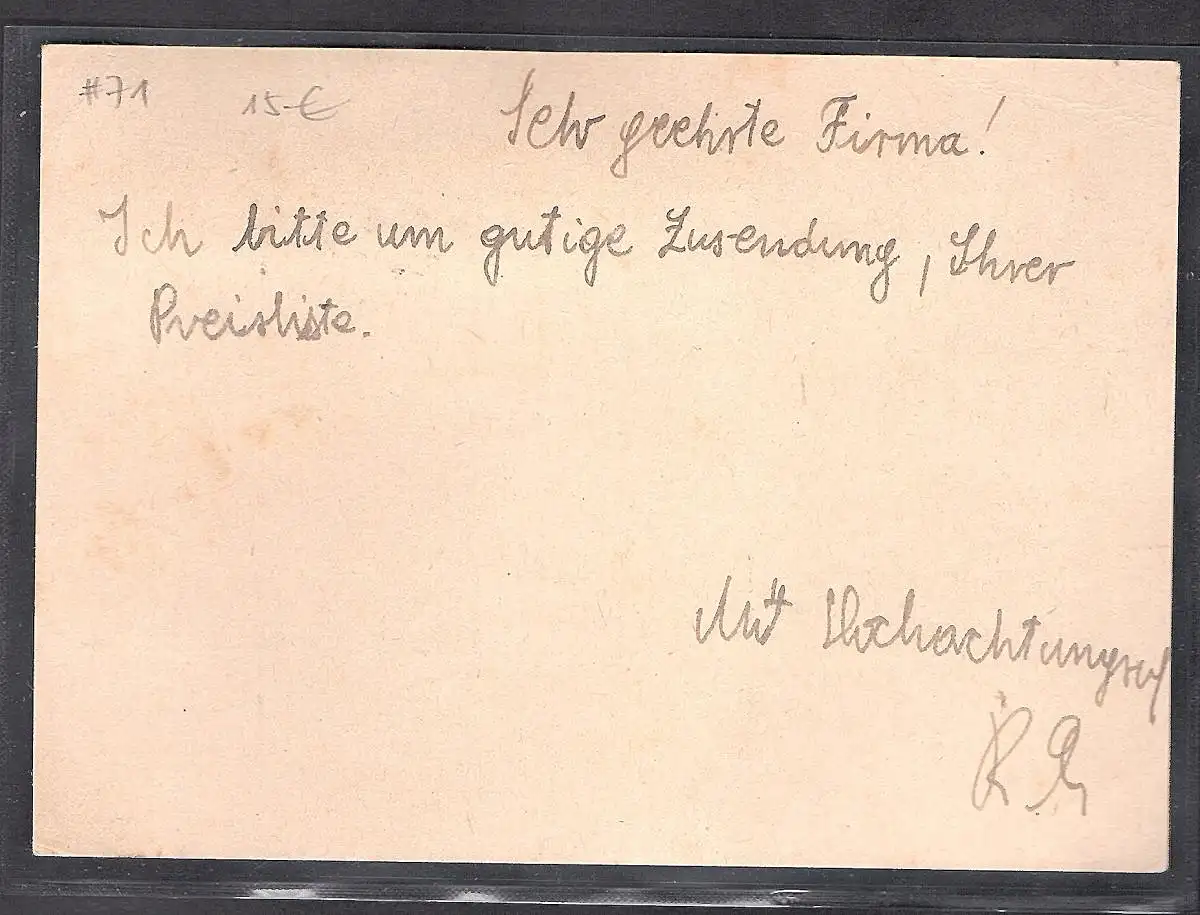 #71 15-€
Sehr geehrte Firma!
Ich bitte um gutige Zusendung, Ihrer
Preisliste.
Mit